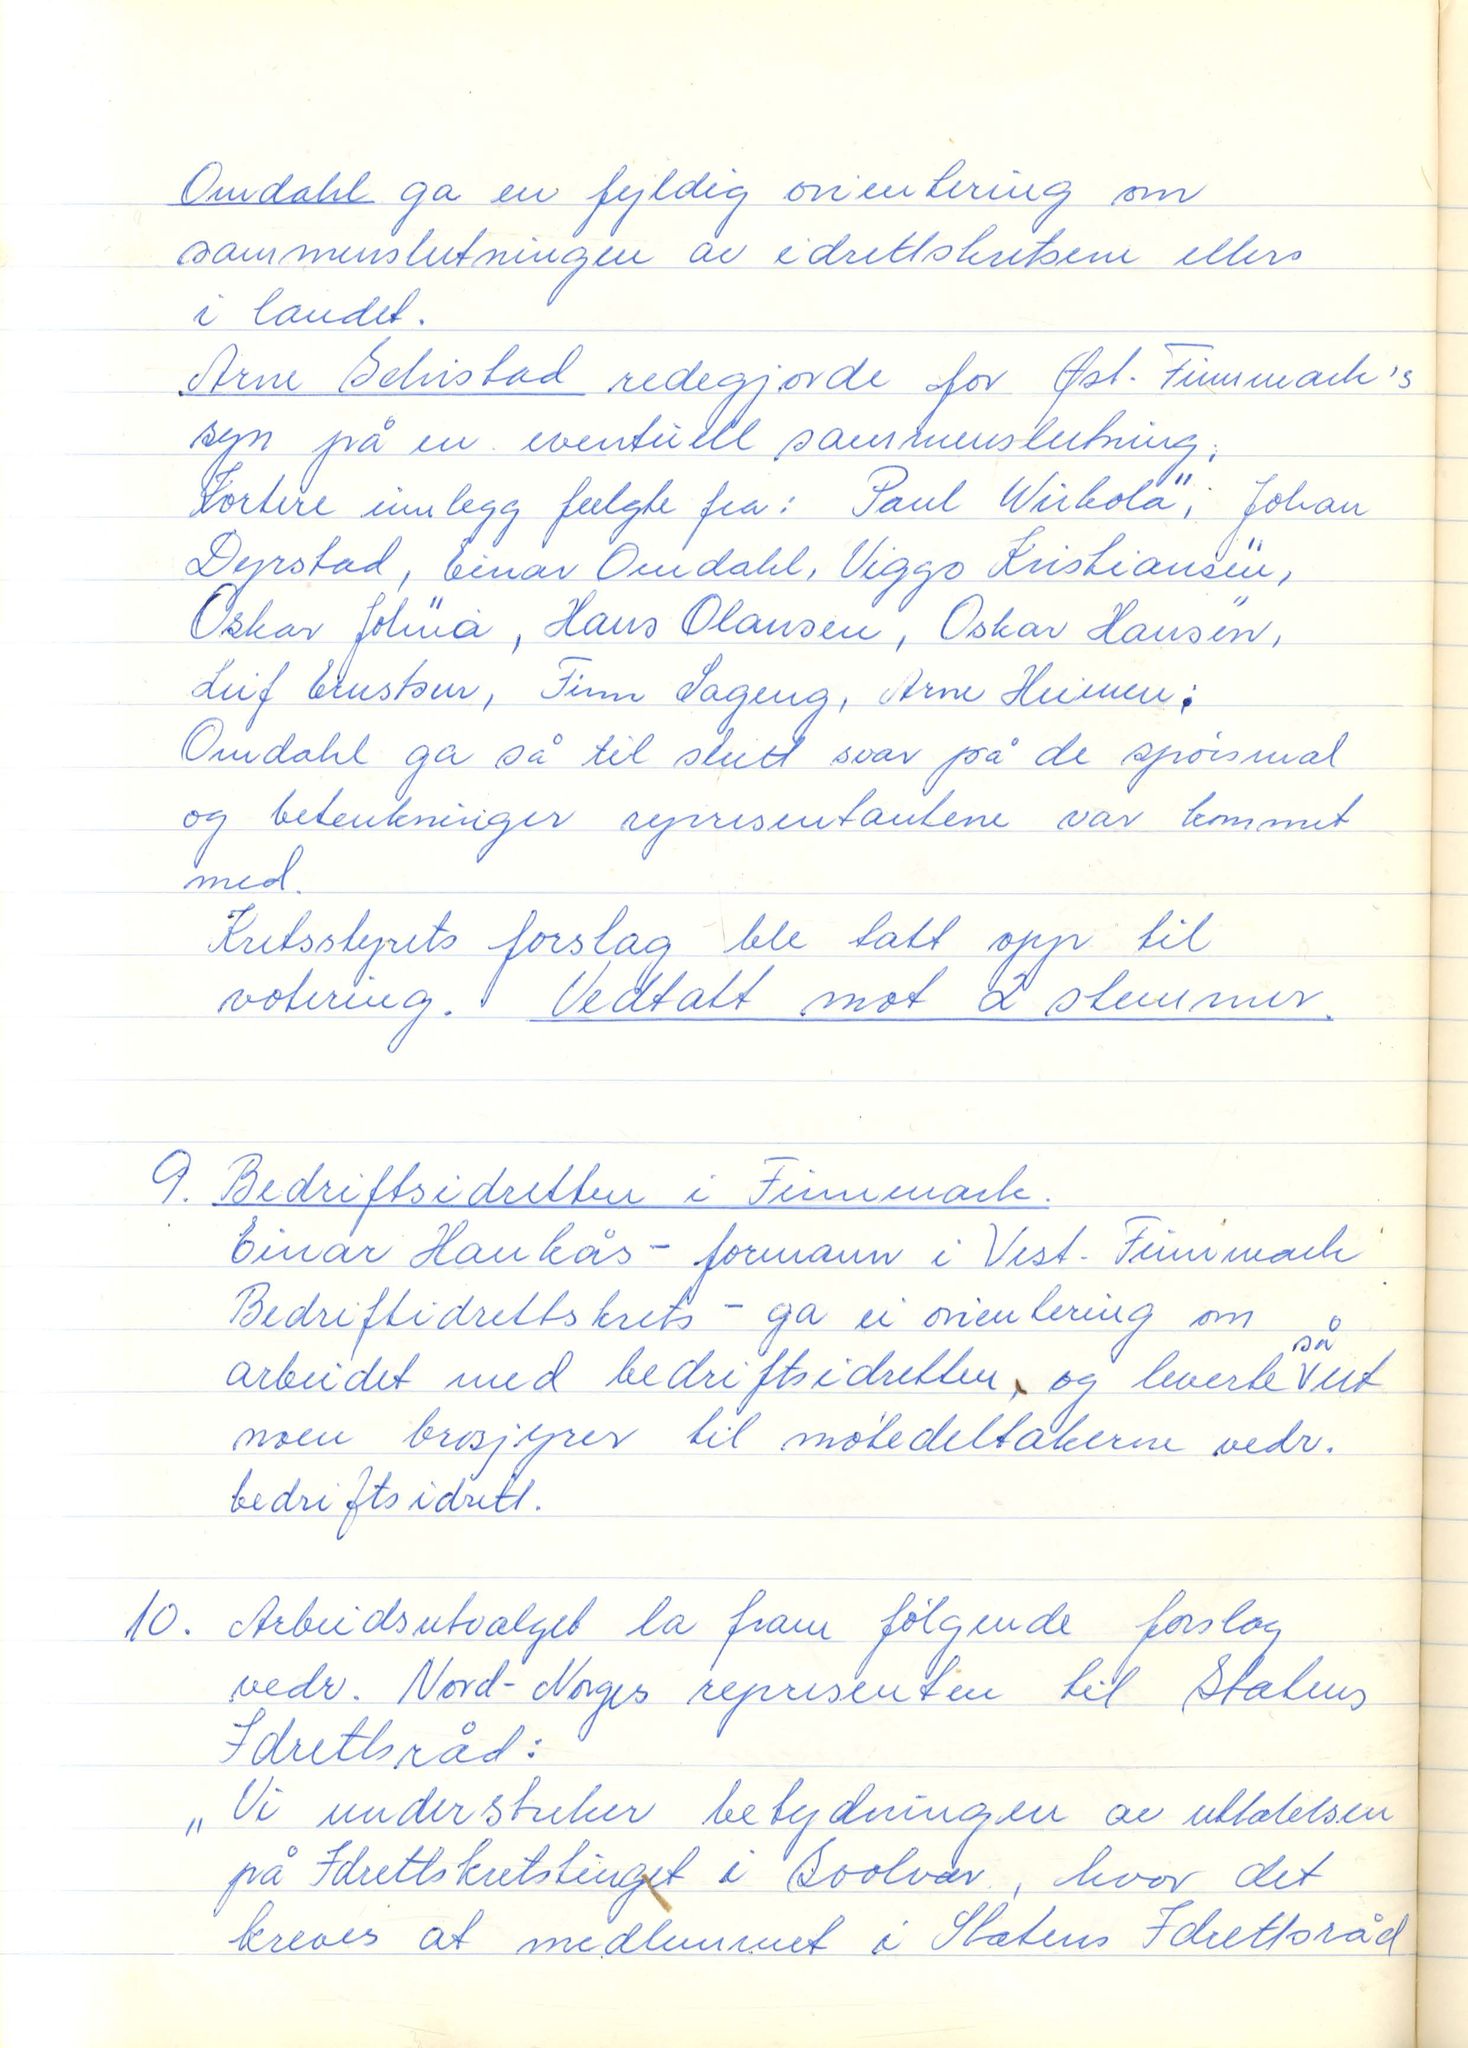 Omdahl ga en fyldig orientering om
sammenslutningen av idrettskretsene ellers
i landet.
Arne Schistad redegjorde for Øst-Finnmark's
syn på en eventuell sammenslutning.
Kortere innlegg fulgte fra: Paul Wirkola, Johan
Dyrstad, Einar Omdahl, Viggo Kristiansen,
Oskar Johna, Hans Olausen, Oskar Hansen,
Leif Ernstsen, Finn Sageng, Arne Heimen.
Omdahl ga så til slutt svar på de spørsmal
og betenkninger representantene var kommet
med.
Kretsstyrets forslag ble tatt opp til
votering. Vedtatt mot 2 stemmer.
9. Bedriftsidretten i Finnmark.
Einar Haukås - formann i Vest-Finnmark
Bedriftidrettskrets - ga ei orientering om
arbeidet med bedriftsidretten, og leverte så ut
noen brosjyrer til møtedeltakerne vedr.
bedriftsidrett.
10. Arbeidsutvalget la fram følgende forslag
vedr. Nord-Norges representen til Statens
Idrettsråd:
"Vi understreker betydningen av uttalelsen
på Idrettskretstinget i Svolvær, hvor det
kreves at medlemmet i Statens Idrettsråd